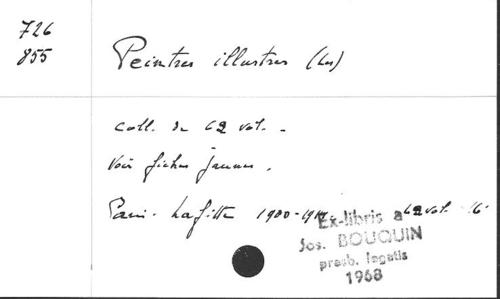 726
855
Peintres illustres (Les)
coll. de 62 vol. -
Voir fiches jaunes.
Paris. Lafitte 1900-19 62 vol. 16.
Ex-libris a
Jos. BOUQUIN
presb. legatis
1968